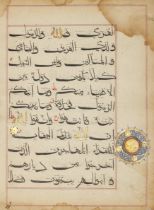 القرى فلله وللرسول
ولذي القربى واليتمى
والمسكين وابن السبيل
كي لا يكون دولة بين
الأغنياء منكم وما
آتاكم الرسول فخذوه وما
نهاكم عنه فانتهوا واتقوا
الله إن الله شديد العقاب
للفقراء المهجرين الذين
أخرجوا من ديارهم
وأموالهم يبتغون فضلا